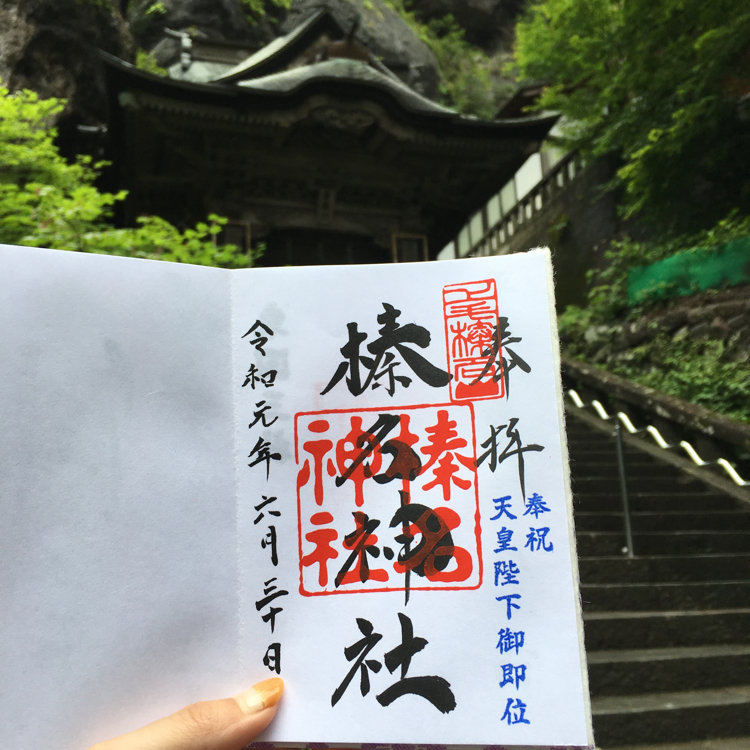 奉拝
奉祝
天皇陛下御即位
榛名神社
榛名
神社
令和元年六月三十日